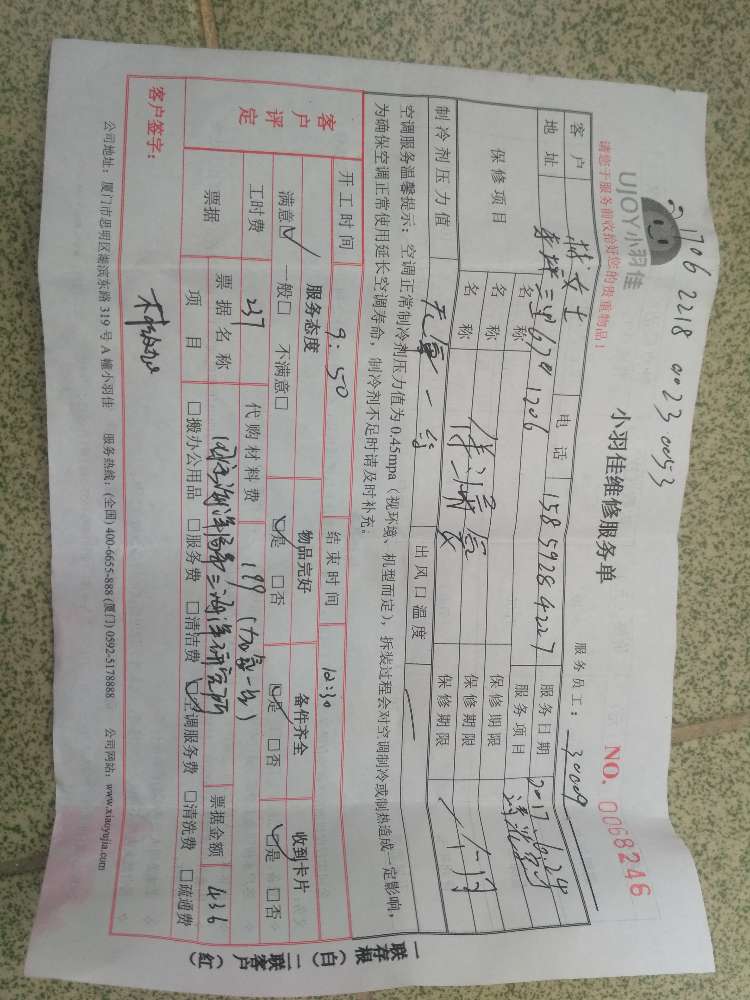 1706 2218 0023 0053
UJOY小羽佳
小羽佳维修服务单
NO. 0068246
请您于服务前收拾好您的贵重物品！
服务员工：30009
客户 女士 电话 15859284227 服务日期 2017.6.24
地址 1206 服务项目
保修项目 名称 保修期限
名称 保修期限
名称 保修期限 一个月
制冷剂压力值 出风口温度
空调服务温馨提示：空调正常制冷剂压力值为0.45mpa（视环境、机型而定），拆装过程会对空调制冷或制热造成一定影响，
为确保空调正常使用延长空调寿命，制冷剂不足时请及时补充。
开工时间 9:50 结束时间 12:30
客户评定 服务态度 物品完好 备件齐全 收到卡片
满意☑ 一般□ 不满意□ ☑是 □否 ☑是 □否 ☑是 □否
工时费 237 代购材料费 199（加氟一台）
票据 票据名称 国家海洋局第三海洋研究所 票据金额 436
项目 □搬办公用品 □服务费 □清洁费 ☑空调服务费 □清洗费 □疏通费
客户签字：
公司地址：厦门市思明区湖滨东路319号A幢小羽佳 服务热线：(全国) 400-6655-888 (厦门) 0592-5178888 公司网站：www.xiaoyujia.com
一联存根（白）二联客户（红）